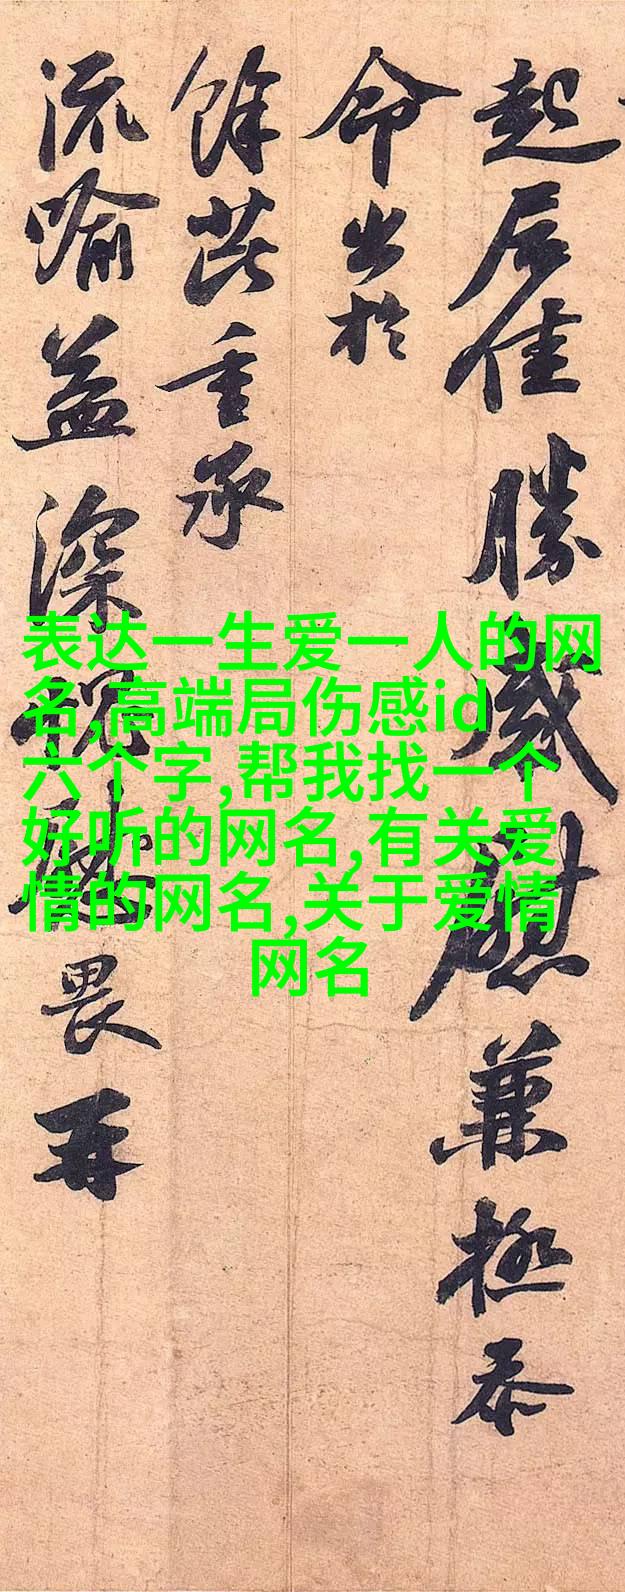 起居佳勝感慰兼極泰
命出於
餘芘重承
流喻益深愧畏再
表达一生爱一人的网
名,高端局伤感id
六个字,帮我找一个
好听的网名,有关爱
情的网名,关于爱情
网名